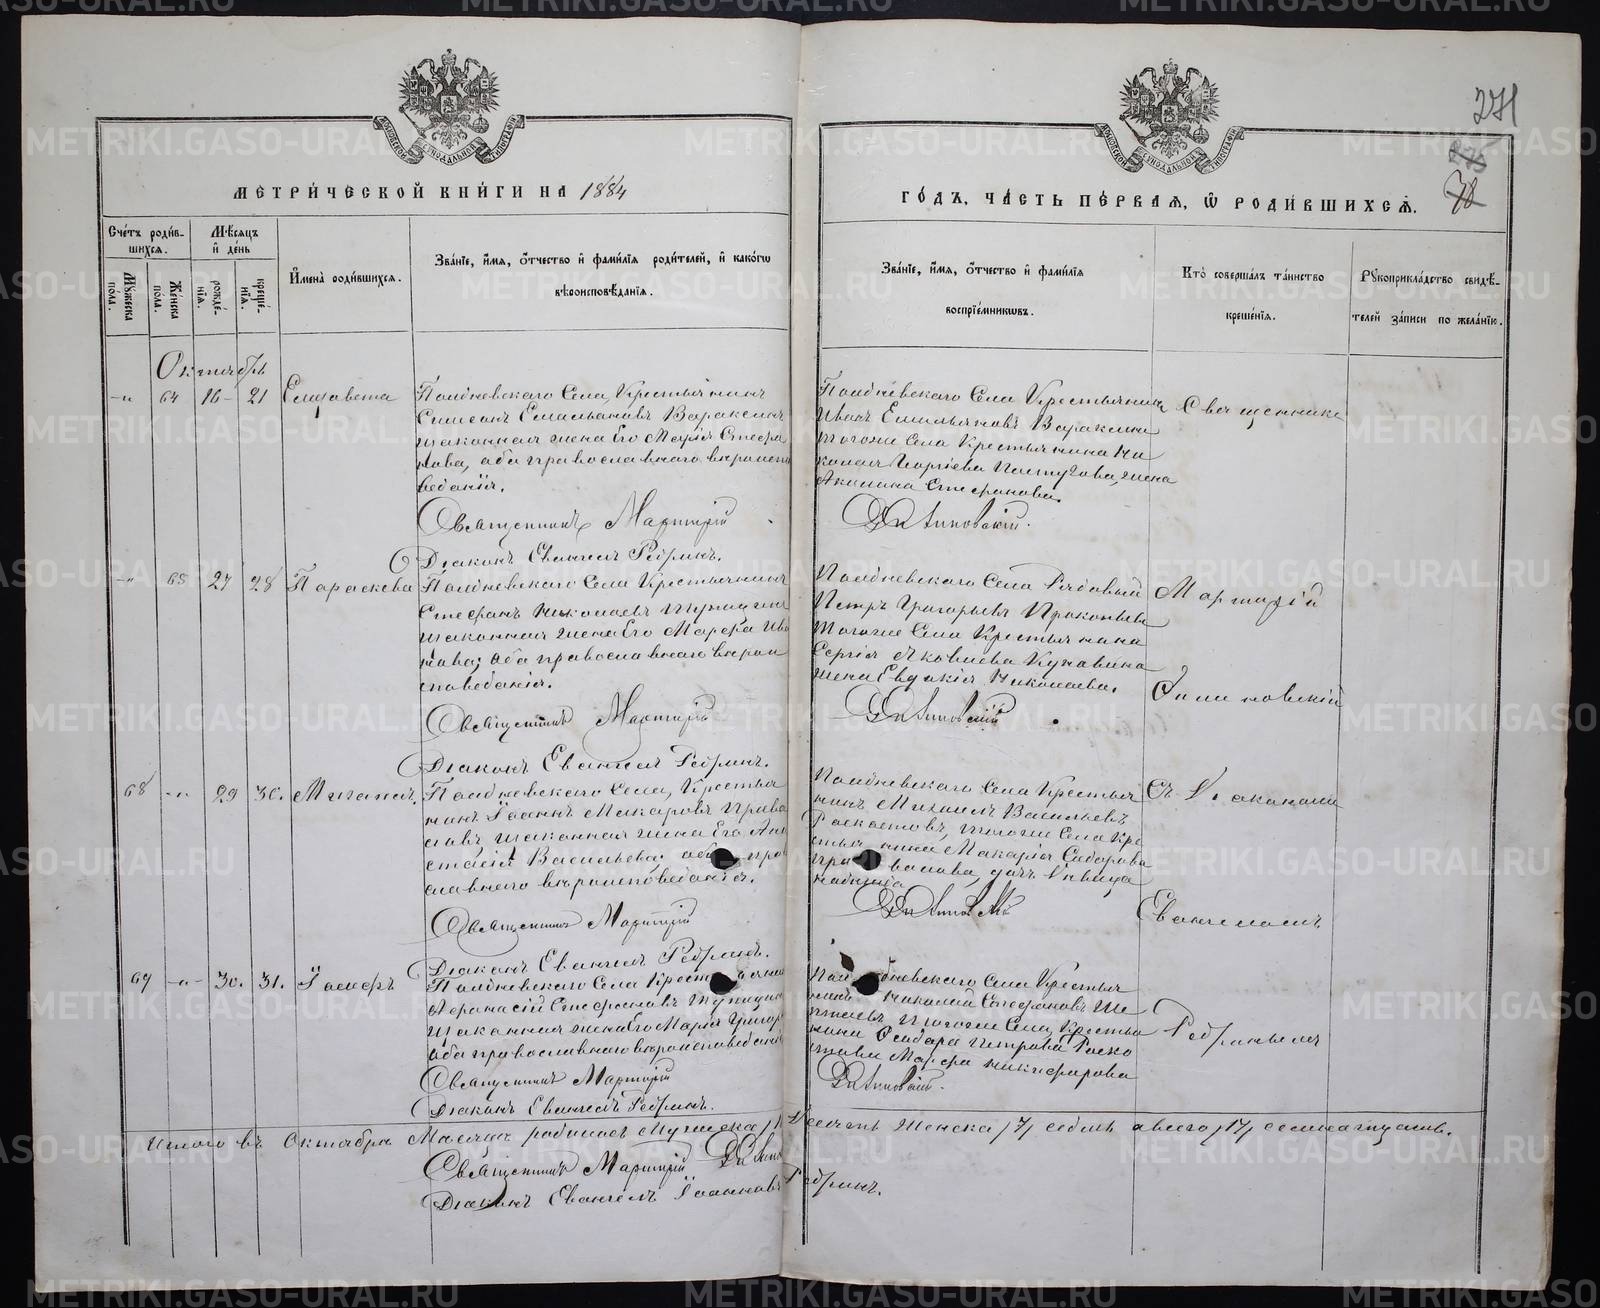 271
МЕТРИ́ЧЕСКОЙ КНИ́ГИ НА 1884
ГО́ДЪ, ЧА́СТЬ ПЕ́РВАЯ, Ѡ РОДИ́ВШИХСѦ.
Сче́тъ роди́в-
шихся.
Мѣ́сяцъ
и҆ де́нь
Му́жеска
по́ла.
Же́нска
по́ла.
рожде́-
нїѧ.
креще́-
нїѧ.
И҆мена̀ роди́вшихся.
Зва́нїе, и҆́мя, ѻ҆́тчество и҆ фами́лїя роди́телей, и҆ како́гѡ
вѣроисповѣ́данїя.
Зва́нїе, и҆́мя, ѻ҆́тчество и҆ фами́лїя
воспрїе́мникѡвъ.
Кто̀ соверша́лъ та́инство
креще́нїя.
Рꙋкоприкла́дство свидѣ́-
телей за́писи по жела́нїю.
Октябрь
-„ 64 16- 21 Елизавета
Полдневскаго Села, Крестьянинъ
Симеонъ Емельяновъ Варакинъ
законная жена Его Марія Стефа
нова, оба православнаго вѣроиспо
веданія.
Священникъ Мартирій
Діаконъ Евангелъ Ребринъ.
Полдневскаго Села Крестьянинъ
Иванъ Емельяновъ Варакинъ
тогоже Села Крестьянина Ни
колая Георгіева Пастухова, жена
Акилина Стефанова.
Священника
-„ 65 27 28 Параскева
Полдневскаго Села Крестьянинъ
Стефанъ Николаевъ
законная жена Его Марфа Ива
нова; оба православнаго вѣрои
споведанія.
Священникъ Мартирій
Діаконъ Евангелъ Ребринъ.
Полдневскаго Села Рядовый
Петръ Григорьевъ Прокопьевъ
тогоже Села Крестьянина
Сергія Яковлева
жена Евдокія Николаева.
Мартирій
68 -„- 29 30. Михаилъ.
Полдневскаго Села, Крестья
нинъ Іоаннъ Макаровъ Прива
ловъ законная жена Его Ана
стасія Васильева: оба право
славнаго вѣроисповѣданія.
Священникъ Мартирій
Діаконъ Евангелъ Ребринъ.
Полдневскаго Села Крестья
нинъ Михаилъ Васильевъ
тогоже Села Кре
стьянина Макарія
Привалова, дочь дѣвица
Съ Діакономъ
Евангеломъ
69 -„- 30. 31. Іосифъ
Полдневскаго Села Крестьянинъ
Афанасій Стефановъ
законная жена Его Марія Григор
оба православнаго вѣроисповедан
Священникъ Мартирій
Діаконъ Евангелъ Ребринъ.
Полдневскаго Села Крестья
нинъ Николай Стефановъ
тогоже Села, Крестья
нина Петрова
Марфа Никифорова
Ребринымъ
Итого въ Октябрѣ Месяцѣ родилось Мужеска /10/ Десять Женска /7/ седмь а всего /17/ семнатцать.
Священникъ Мартирій
Діаконъ Евангелъ Іоанновъ Ребринъ.
METRIKI.GASO-URAL.RU